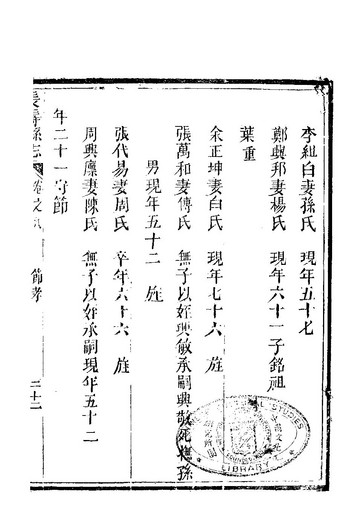 李組白妻孫氏 現年五十七
鄭輿邦妻楊氏 現年六十一子銘祖
葉重
余正坤妻白氏 現年七十六 旌
張萬和妻傅氏 無子以姪興敏承嗣興敏死撫孫
男現年五十二 旌
張代易妻周氏 卒年六十六 旌
周興廪妻陳氏 無子以姪承嗣現年五十二
年二十一守節
長壽縣志 卷之八 節孝 三十二
LIBRARY